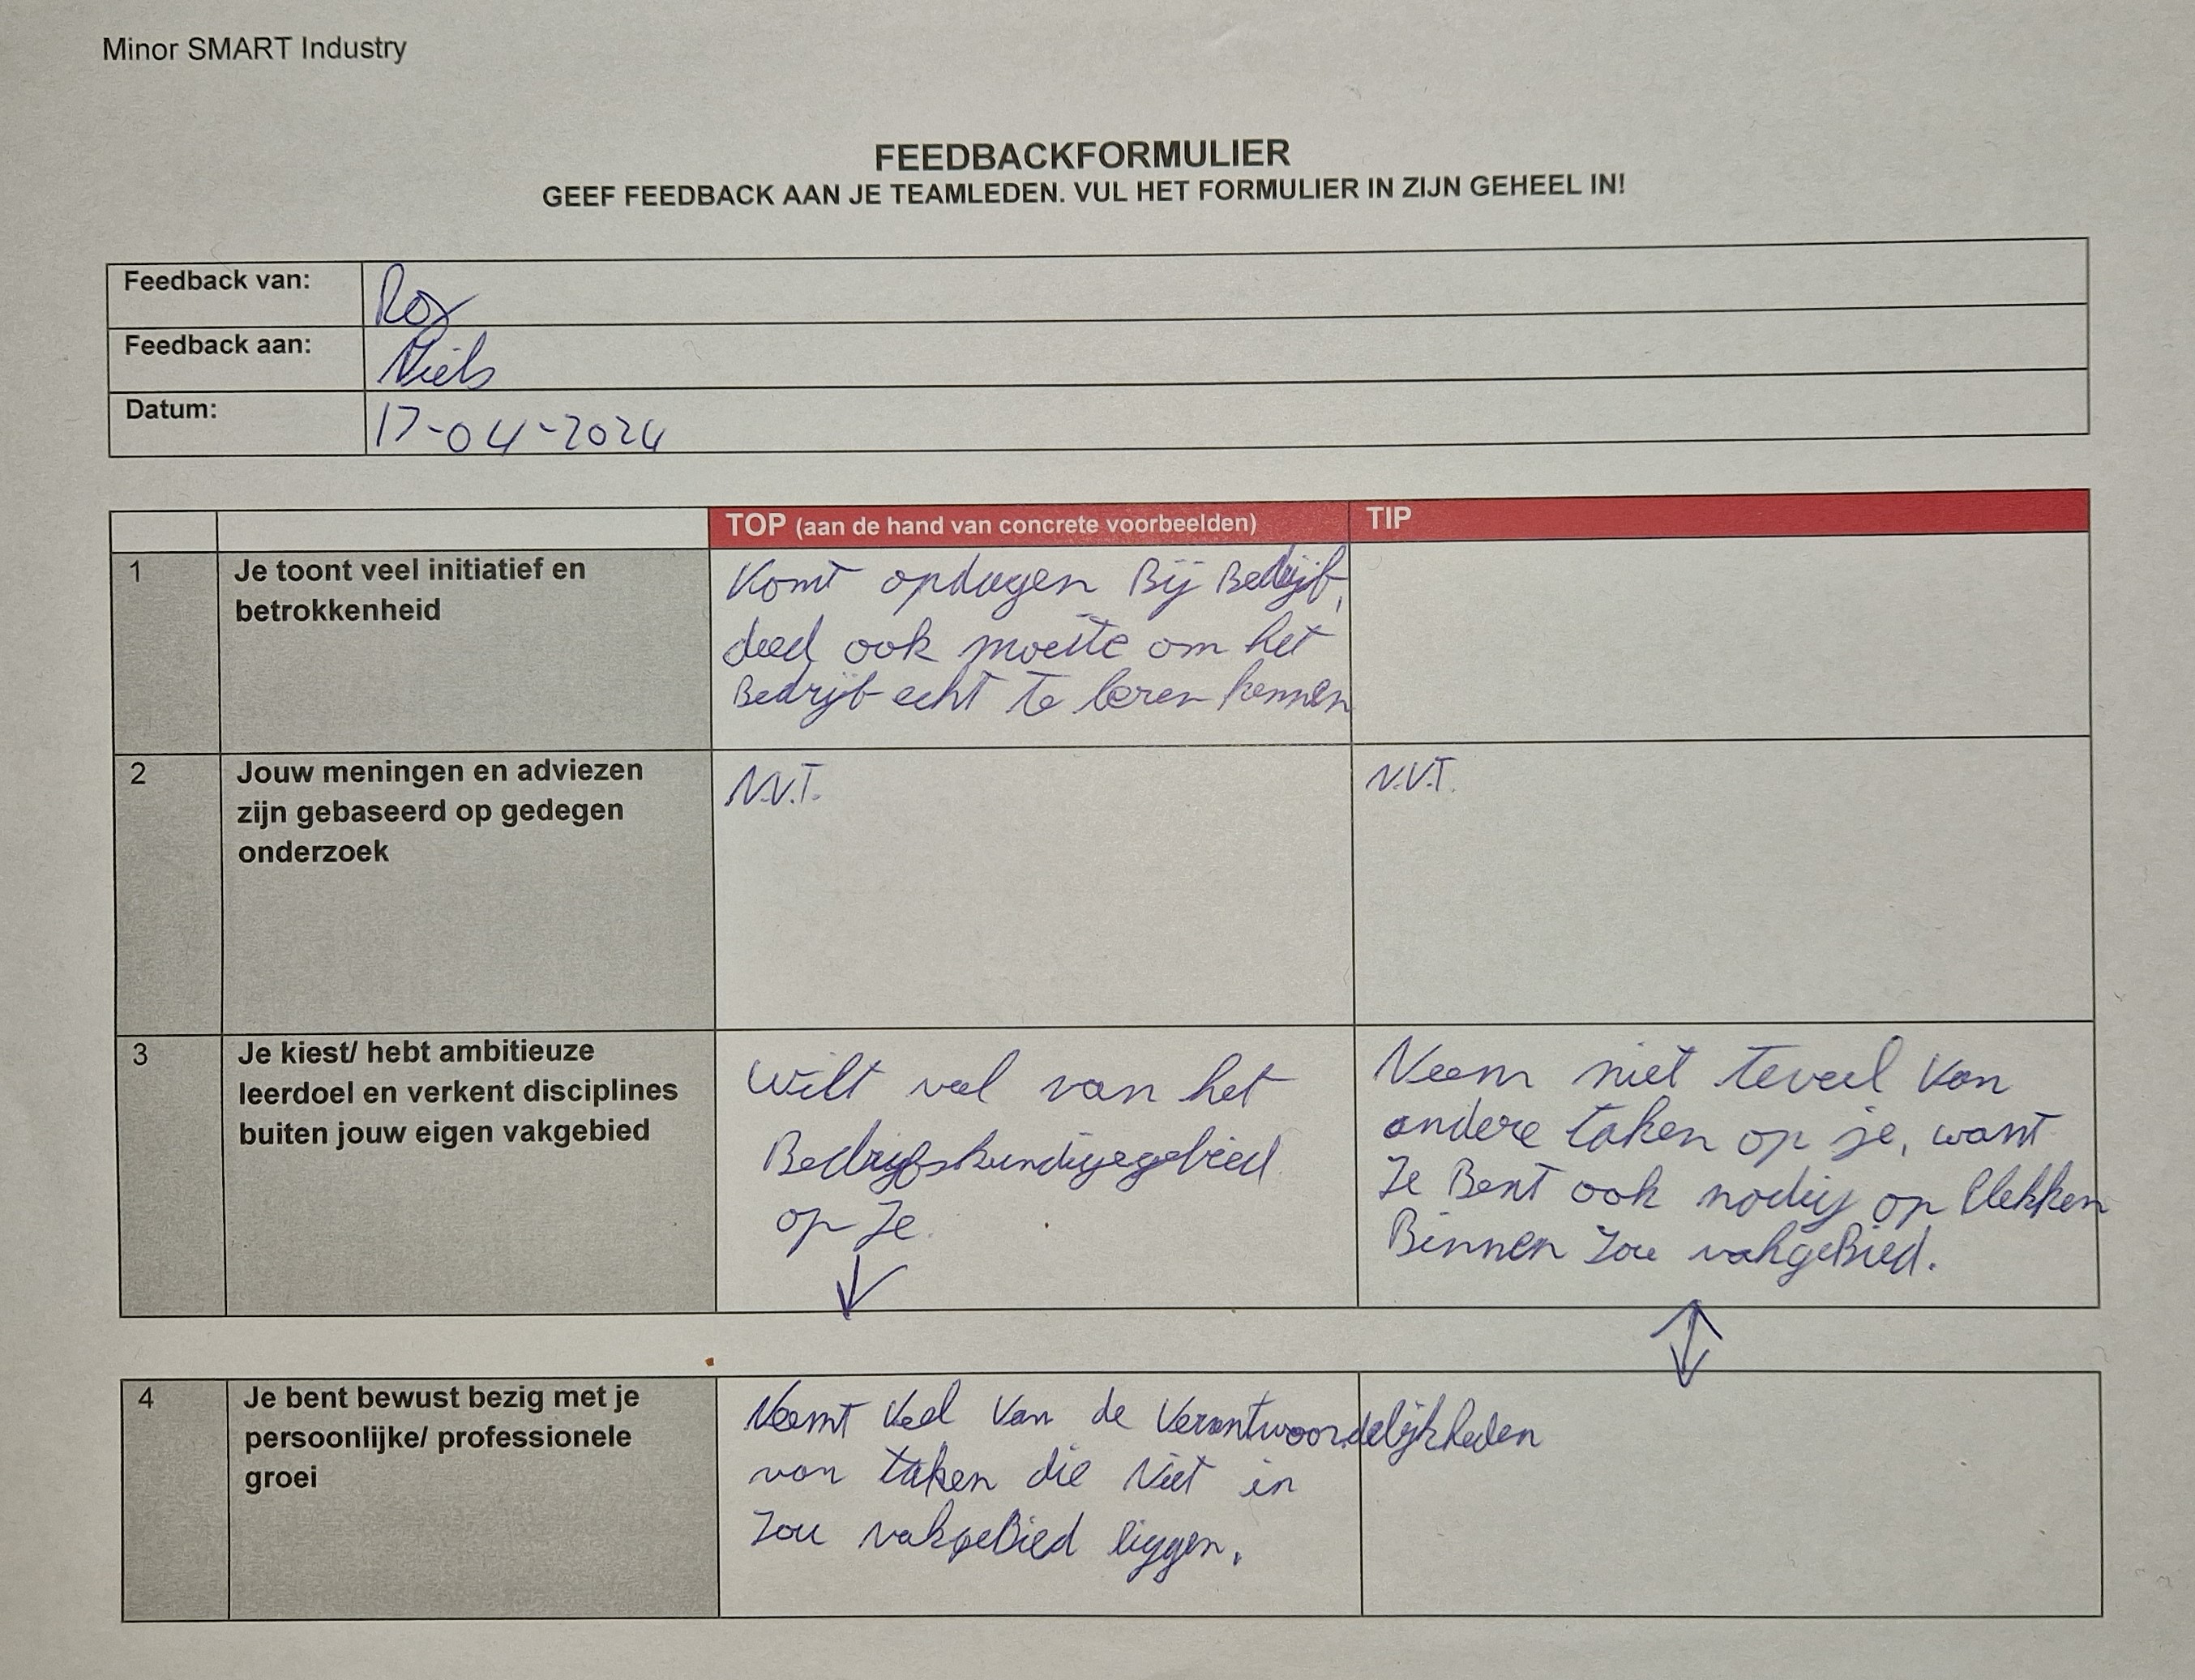 Minor SMART Industry
FEEDBACKFORMULIER
GEEF FEEDBACK AAN JE TEAMLEDEN. VUL HET FORMULIER IN ZIJN GEHEEL IN!
Feedback van:
Roy
Feedback aan:
Niels
Datum:
17-04-2024
TOP (aan de hand van concrete voorbeelden)
TIP
1
Je toont veel initiatief en
betrokkenheid
Komt opdagen Bij Bedrijf,
deed ook moeite om het
Bedrijf echt te leren kennen
2
Jouw meningen en adviezen
zijn gebaseerd op gedegen
onderzoek
N.V.T.
N.V.T.
3
Je kiest/ hebt ambitieuze
leerdoel en verkent disciplines
buiten jouw eigen vakgebied
Wilt veel van het
Bedrijfskundigegebied
op Je.
Neem niet teveel van
andere taken op je, want
Je Bent ook nodig op Plekken
Binnen Jou vakgeBied.
4
Je bent bewust bezig met je
persoonlijke/ professionele
groei
Neemt veel van de Verantwoordelijkheden
van taken die Niet in
Jou vakgeBied liggen.